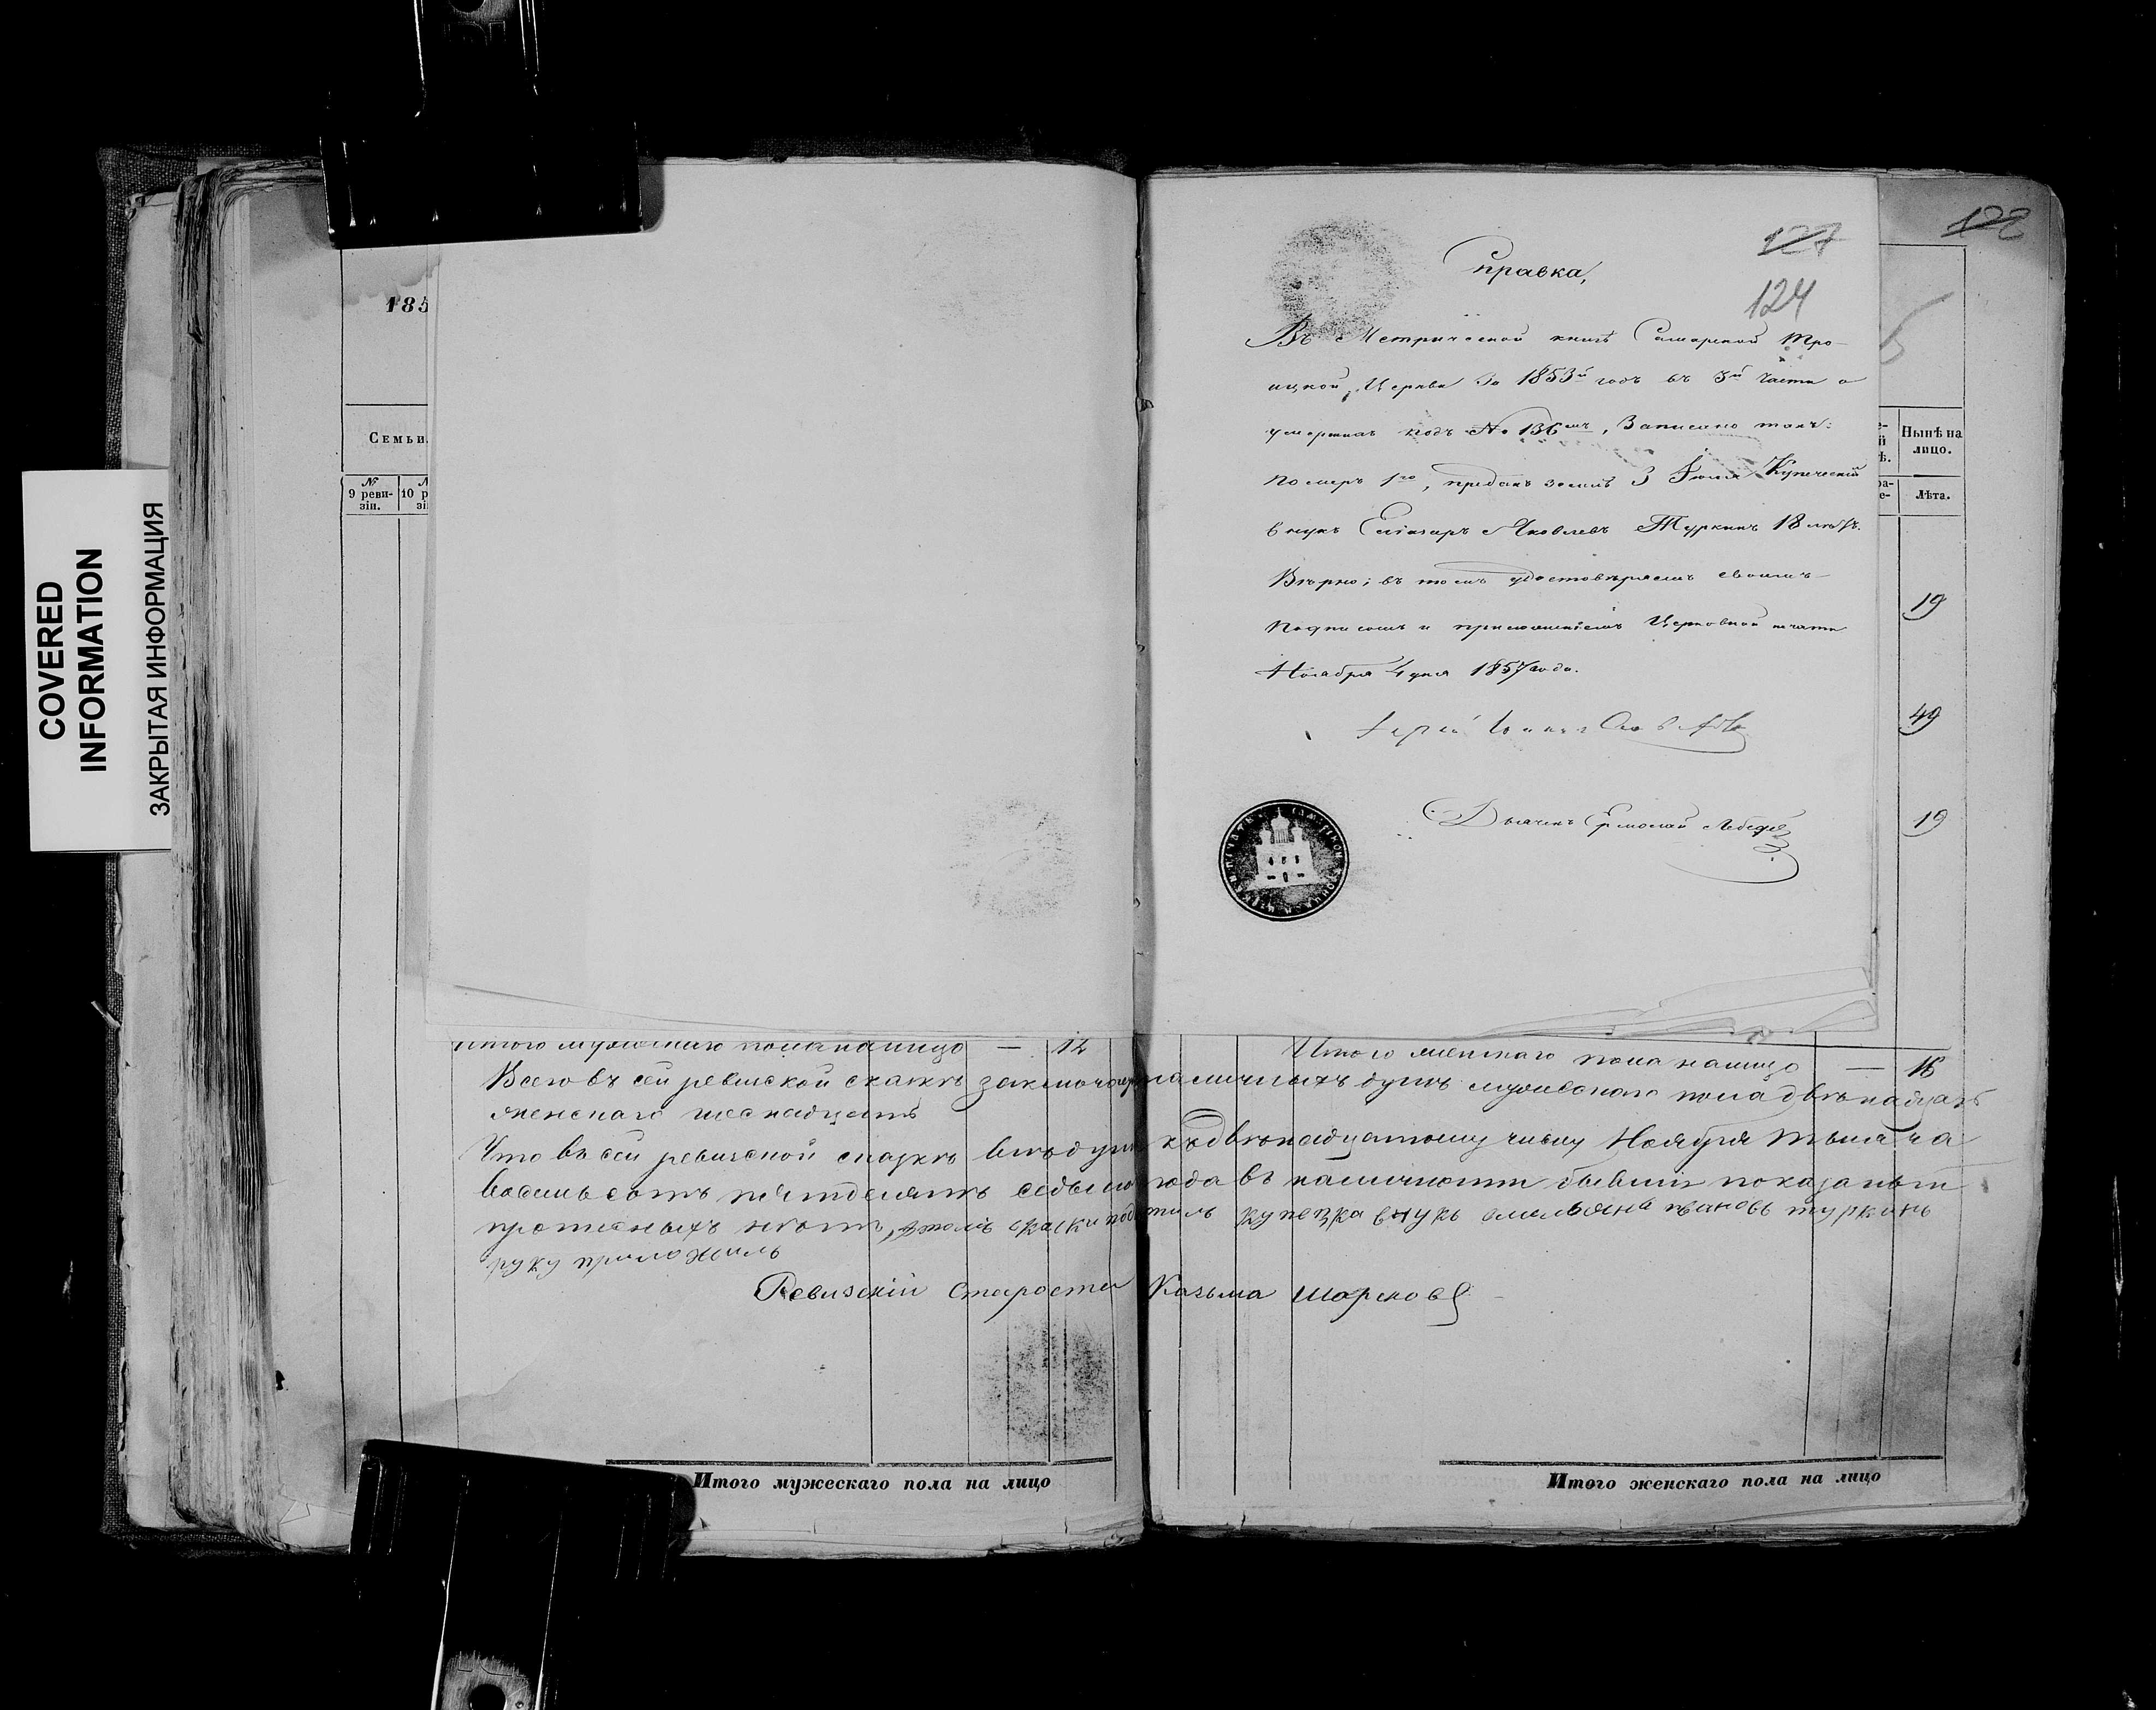 COVERED
INFORMATION
ЗАКРЫТАЯ ИНФОРМАЦИЯ
185
Семьи
№
9 реви-
зіи.
10 р
зі
122
127
124
Справка,
Въ Метрической книгѣ Самарской Тро-
ицкой Церкви за 1853й годъ въ 3й части о
умершихъ подъ № 136мъ, Записано такъ:
Померъ 1го, преданъ землѣ 3 Іюля Купеческій
внукъ Еліазаръ Яковлевъ Туркинъ 18 лѣтъ.
Вѣрно; въ томъ удостовѣряемъ своимъ
подписомъ и приложеніемъ Церковной печати
Ноября 4 дня 1857 года.
Іерей
Дьячекъ Ермолай Лебеде
Нынѣ на
лицо.
Лѣта.
19
49
19
Итого мужескаго пола налицо — 12
Итого женскаго пола налицо — 16
Всего въ сей ревиской скаскѣ заключает наличныхъ душъ мужескаго пола двѣнадцать
женскаго шеснадцать
Что въ сей ревиской скаскѣ всѣ души къ двѣнадцатому числу Ноября тысяча
восемьсотъ пятдесятъ седьмого года въ наличности бывшіи показаны и
прописныхъ нѣтъ, скаски купецка внукъ емельянъ ивановъ туркинъ
руку приложилъ
Ревизскій Староста Казьма
Итого мужескаго пола на лицо
Итого женскаго пола на лицо